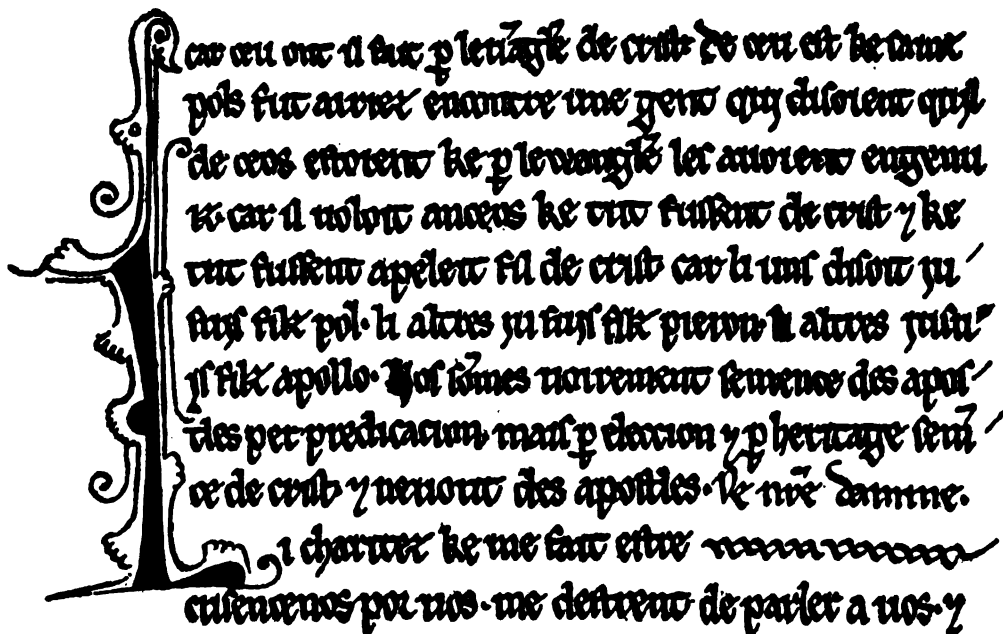 car ceu ont il fait p̱ leuāgle de crist. De ceu est ke sainz
pols fut airiez encontre une gent qui disoient quil
de ceos estoient ke p̱ lewangle les auoient engenui
iz. car il uoloit anceos ke tuit fussent de crist ⁊ ke
tuit fussent apeleit fil de crist. car li uns disoit iu
suys filz pol. li altres iu suys filz pieron. li altres iu sui
is filz apollo. Nos sōmes uoirement semence des apos
tles per predicacion, mais p̱ eleccion ⁊ p̱ heritage semē
ce de crist. ⁊ neuout des apostles. De nr̄e damme.
Li charitez ke me fait estre
cusencenos por uos. me destrent de parler a uos. ⁊